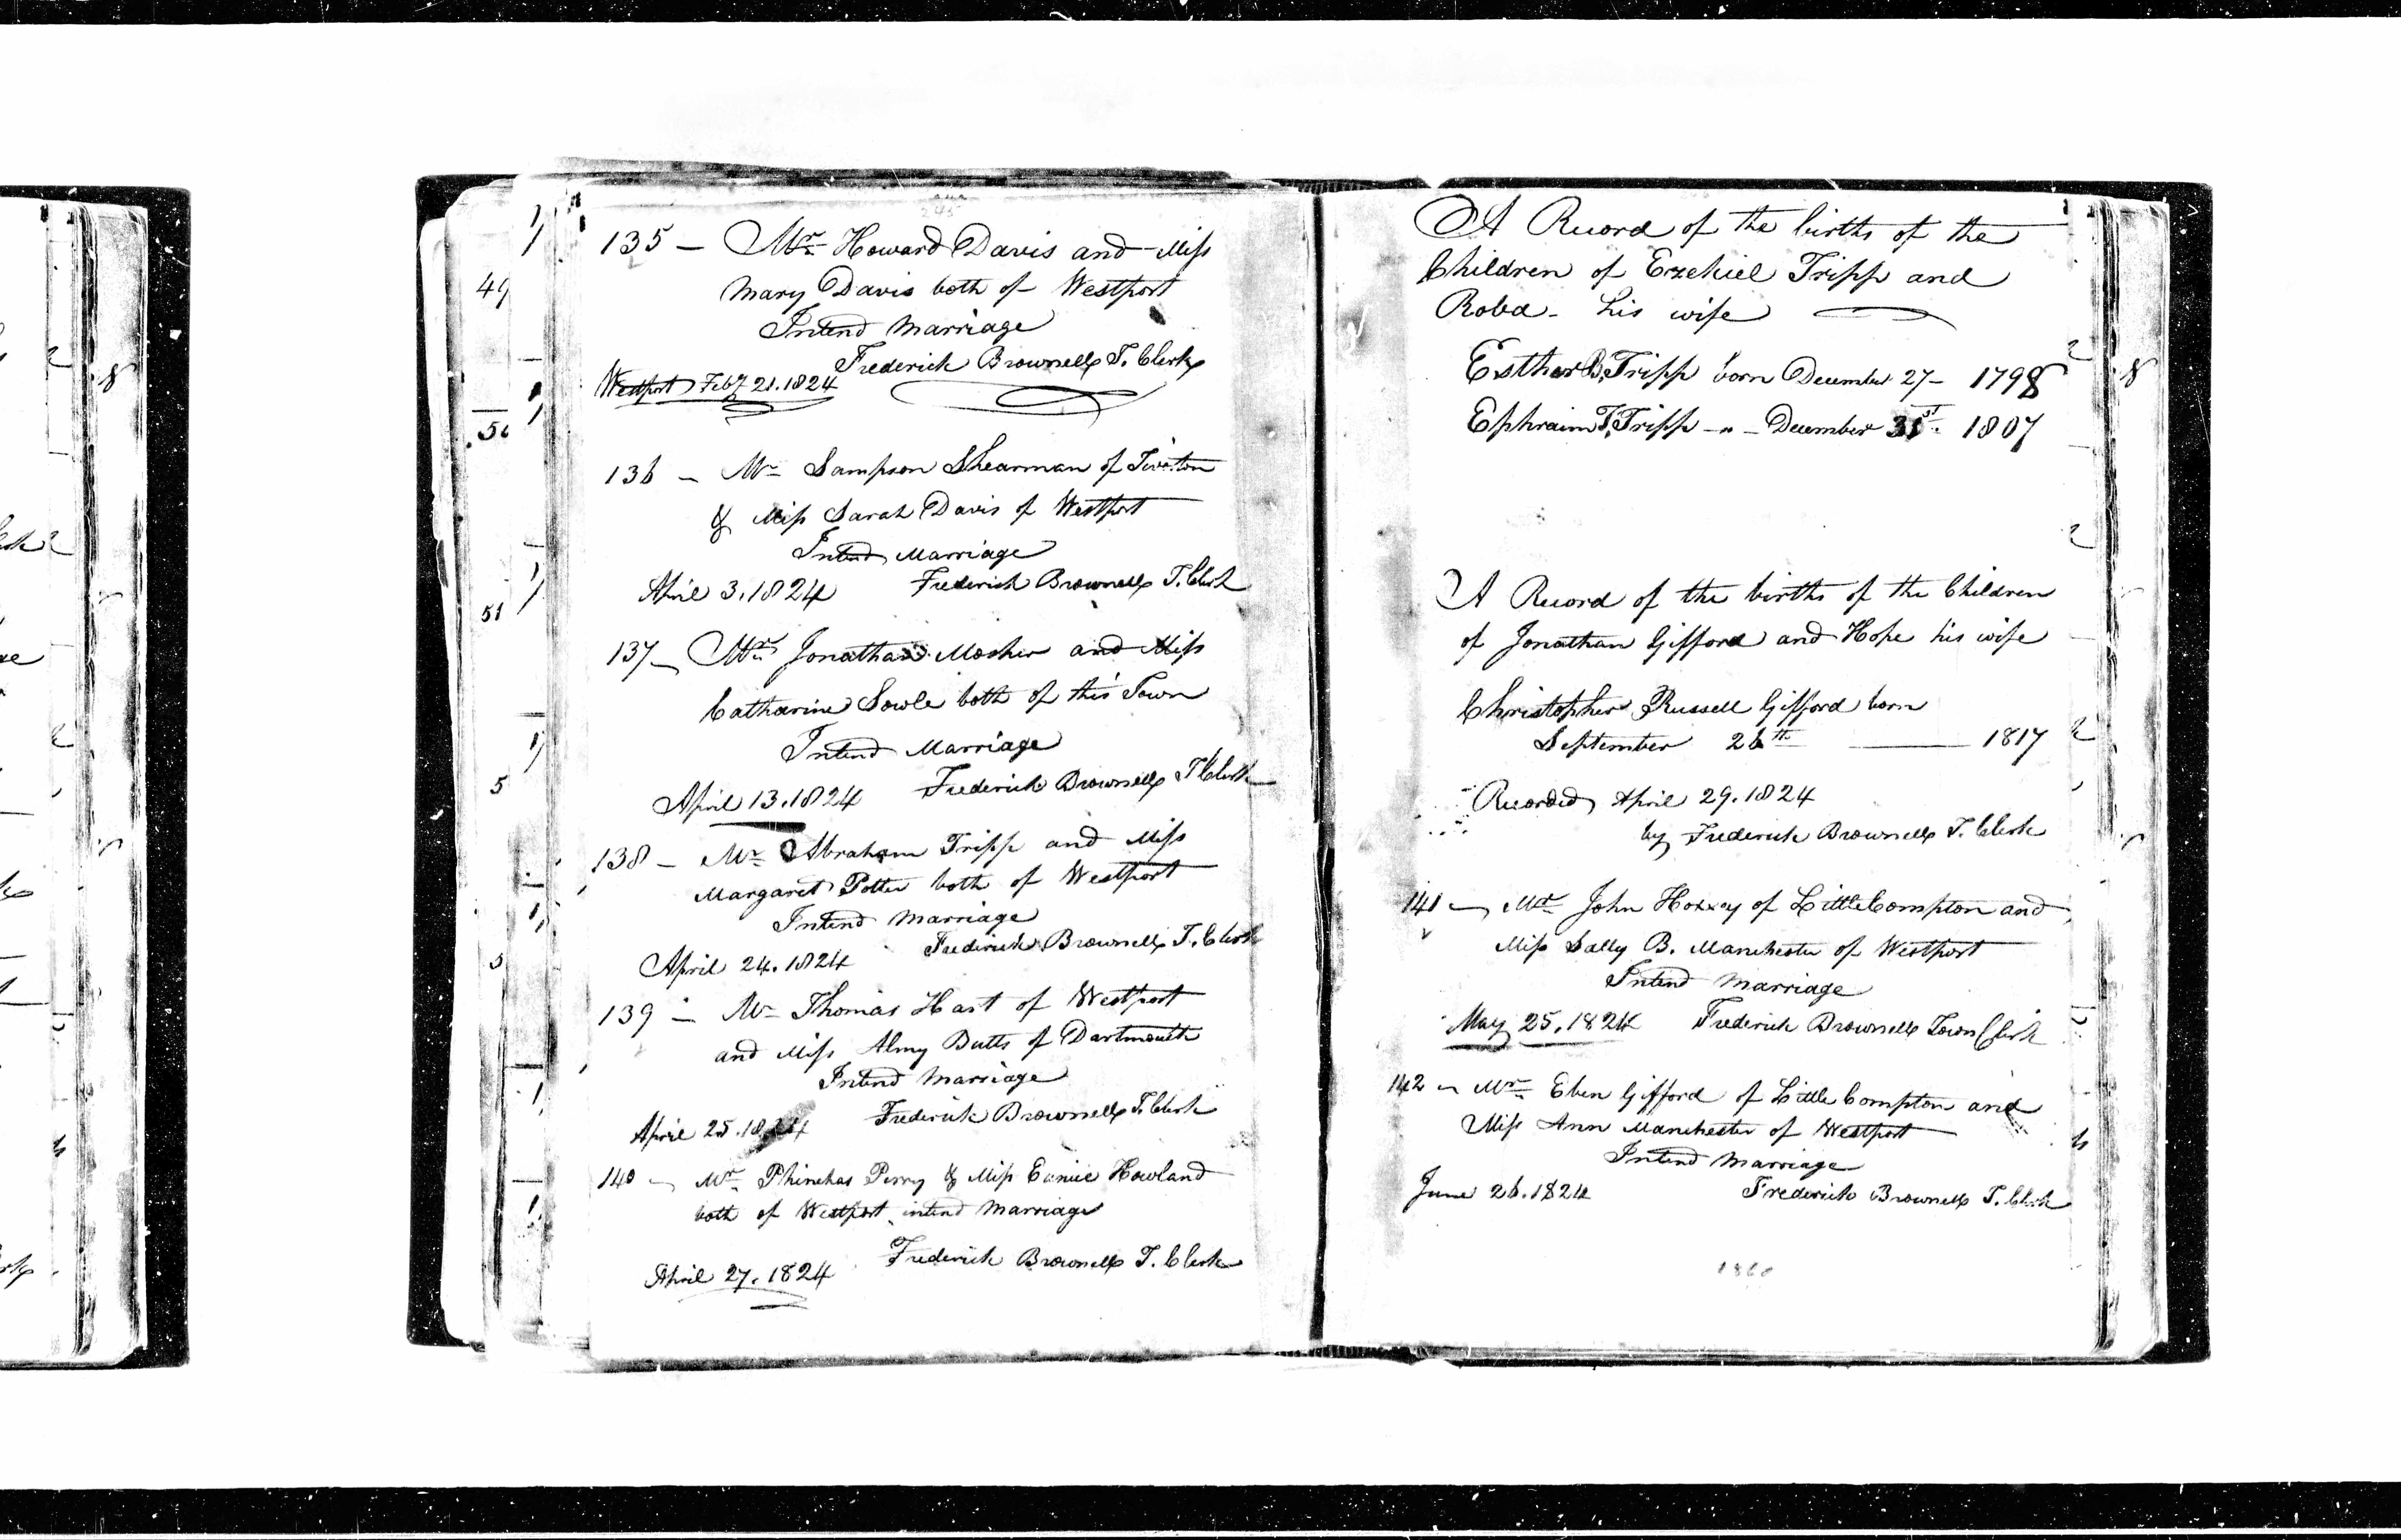 135 — Mr Howard Davis and Miss
Mary Davis both of Westport
Intend Marriage
Frederick Brownell T. Clerk
Westport Feby 21. 1824
136 — Mr Sampson Shearman of Tiverton
& Miss Sarah Davis of Westport
Intend Marriage
April 3. 1824 Frederick Brownell T. Clerk
137 — Mr Jonathan Mosher and Miss
Catharine Sowle both of this Town
Intend Marriage
April 13. 1824 Frederick Brownell T Clerk
138 — Mr Abraham Tripp and Miss
Margaret Potter both of Westport
Intend Marriage
April 24. 1824 Frederick Brownell T. Clerk
139 — Mr Thomas Hart of Westport
and Miss Almy Butts of Dartmouth
Intend Marriage
April 25. 1824 Frederick Brownell T. Clerk
140 — Mr Phinehas Perry & Miss Eunice Howland
both of Westport intend Marriage
Frederick Brownell T. Clerk
April 27. 1824
A Record of the births of the
Children of Ezekiel Tripp and
Roba - his wife
Esther B. Tripp born December 27 - 1798
Ephraim T. Tripp - " - December 31st. 1807
A Record of the births of the Children
of Jonathan Gifford and Hope his wife
Christopher Russell Gifford born
September 26th — 1817
Recorded April 29. 1824
by Frederick Brownell T. Clerk
141 — Mr John Hoxxey of Little Compton and
Miss Sally B. Manchester of Westport
Intend Marriage
May 25. 1824 Frederick Brownell Town Clerk
142 — Mr Eben Gifford of Little Compton and
Miss Ann Manchester of Westport
Intend Marriage
June 26. 1824 Frederick Brownell T. Clerk